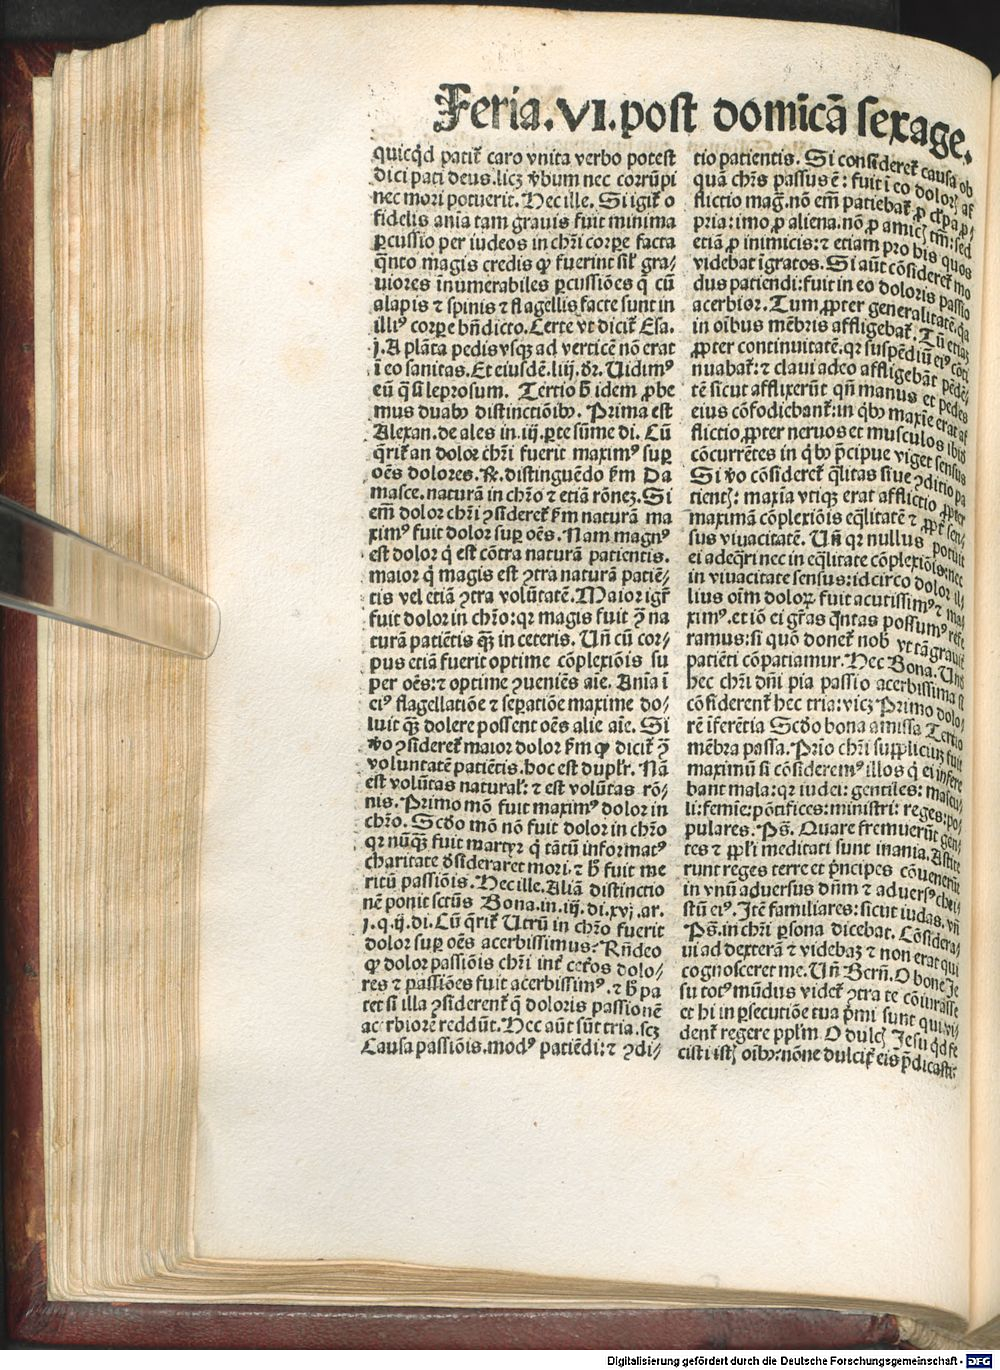 Feria.VI.post domicā sexage.
quicqd patiť caro vnita verbo potest
dici pati deus.licꝫ v̓bum nec corrūpi
nec mori potuerit. Hec ille. Si igiť o
fidelis ania tam grauis fuit minima
ꝑcussio per iudeos in chr̄i corꝑe facta
q̄nto magis credis ꝙ fuerint sil' gra/
uiores innumerabiles ꝑcussiōes q̄ cū
alapis ⁊ spinis ⁊ flagellis facte sunt in
illiꝰ corꝑe bn̄dicto. Certe vt diciť Esa.
j. A plāta pedis vsqꝫ ad verticē nō erat
ī eo sanitas. Et eiusdē.liij. dr̄. Uidimꝰ
eū q̄ si leprosum. Tertio h̄ idem ꝓbe
mus duabꝰ distinctiōibꝰ. Prima est
Alexan. de ales in.iij. ꝑte sūme di. Cū
q̄riť an dolor chr̄i fuerit maximꝰ suꝑ
oēs dolores. Rͦ. distinguēdo ẜm Da
masce. naturā in chr̄o ⁊ etiā rōneꝫ. Si
em̄ dolor chr̄i ꝯsidereť ẜm naturā ma
ximꝰ fuit dolor suꝑ oēs. Nam magnꝰ
est dolor q̄ est cōtra naturā patientis.
maior q̄ magis est ꝯtra naturā patiē/
tis vel etiā ꝯtra volūtatē. Maior igr̄
fuit dolor in chr̄o: qr magis fuit ꝯ̄ na
turā patiētis qꝫ̄ in ceteris. Un̄ cū cor/
pus etiā fuerit optime cōplexiōis su
per oēs: ⁊ optime ꝯueniēs aīe. Ania ī
eiꝰ flagellatiōe ⁊ seꝑatiōe maxime do/
luit qꝫ̄ dolere possent oēs alie aīe. Si
v̓o ꝯsidereť maior dolor ẜm ꝙ diciť ꝯ̄
voluntatē patiētis. hoc est dupl'r. Nā
est volūtas natural': ⁊ est volūtas rō/
nis. Primo mō fuit maximꝰ dolor in
chr̄o. Scd̓o mō nō fuit dolor in chr̄o
qr nūqꝫ̄ fuit martyr q̄ tātū informatꝰ
charitate d̓sideraret mori. ⁊ h̄ fuit me
ritū passiōis. Hec ille. Aliā distinctio
nē ponit sctūs Bona. in.iij. di.xvj. ar.
j.q.ij.di. Cū q̄riť Utrū in chr̄o fuerit
dolor suꝑ oēs acerbissimus? Rn̄deo
ꝙ dolor passiōis chr̄i inť ceťos dolo/
res ⁊ passiōes fuit acerbissimꝰ. ⁊ h̄ pa
tet si illa ꝯsiderenť q̄ doloris passionē
acerbiorē reddūt. Hec aūt sūt tria. scꝫ
Causa passiōis. modꝰ patiēdi: ⁊ ꝯdi/
tio patientis. Si considereť causa ob
quā chr̄s passus ē: fuit ī eo doloꝝ af
flictio mag̃. nō em̄ patiebať ꝓ cl̓pa ꝓ/
pria: imo ꝓ aliena. nō ꝓ amicꝭ tm̄: sed
etiā ꝓ inimicis: ⁊ etiam pro his quos
videbat īgratos. Si aūt cōsidereť mo
dus patiendi: fuit in eo doloris passio
acerbior. Tum ꝓpter generalitatē. qa
in oībus mēbris affligebať. Tū etiaꝫ
ꝓpter continuitatē. qr suspēdiū eiꝰ cōti
nuabať: ⁊ claui adeo affligebāt pēdē/
tē sicut affixerūt qn̄ manus et pedes
eius cōfodiebanť: in qbꝰ maxīe erat af
flictio ꝓpter neruos et musculos ibis
cōcurrētes in qbꝰ p̄cipue viget sensus
Si v̓o cōsidereť qlitas siue ꝯditio pa
tientꝭ: maxīa vtiqꝫ erat afflictio ꝓpter
maximā cōplexiōis eqlitatē ⁊ ꝓpť sen/
sus viuacitatē. Un̄ qr nullus potuit
ei adeqri nec in eqlitate cōplexiōis: nec
in viuacitate sensus: idcirco dolor il/
lius oīm doloꝝ fuit acutissimꝰ ⁊ ma/
ximꝰ. et iō ei gr̄as q̄ntas possumꝰ refe
ramus: si quō doneť nob̓ vt tā grauiť
patiēti cōpatiamur. Hec Bona. Un̄
hec chr̄i dn̄i pia passio acerbissima si
cōsiderenť hec tria: vicꝫ Primo dolo/
rē īferētia Scd̓o bona amissa Tertio
mēbra passa. Prīo chr̄i suppliciuꝫ fuit
maximū si cōsideremꝰ illos q̄ ei infere
bant mala: qr iudei: gentiles: mascu/
li: femīe: pōtifices: ministri: reges: po/
pulares. Ps̄. Quare fremuerūt gen/
tes ⁊ ppl'i meditati sunt inania. Astite
runt reges terre et p̄ncipes cōuenerūt
in vnū aduersus dn̄m ⁊ aduersꝰ chri/
stū eiꝰ. Itē familiares: sicut iudas. vn̄
Ps̄. in chr̄i ꝑsona dicebat. Cōsidera/
ui ad dexterā ⁊ videbaꝫ ⁊ non erat qui
cognosceret me. Un̄ Bern̄. O bone Je
su totꝰ mūdus videť ꝯtra te cōiurasse
et hi in ꝑsecutiōe tua p̄mi sunt qui vi/
denť regere ppl'm O dulcꝭ Jesu qd fe
cisti istꝭ oībꝰ: nōne dulciť eis p̄dicasti:
Digitalisierung gefördert durch die Deutsche Forschungsgemeinschaft - DFG